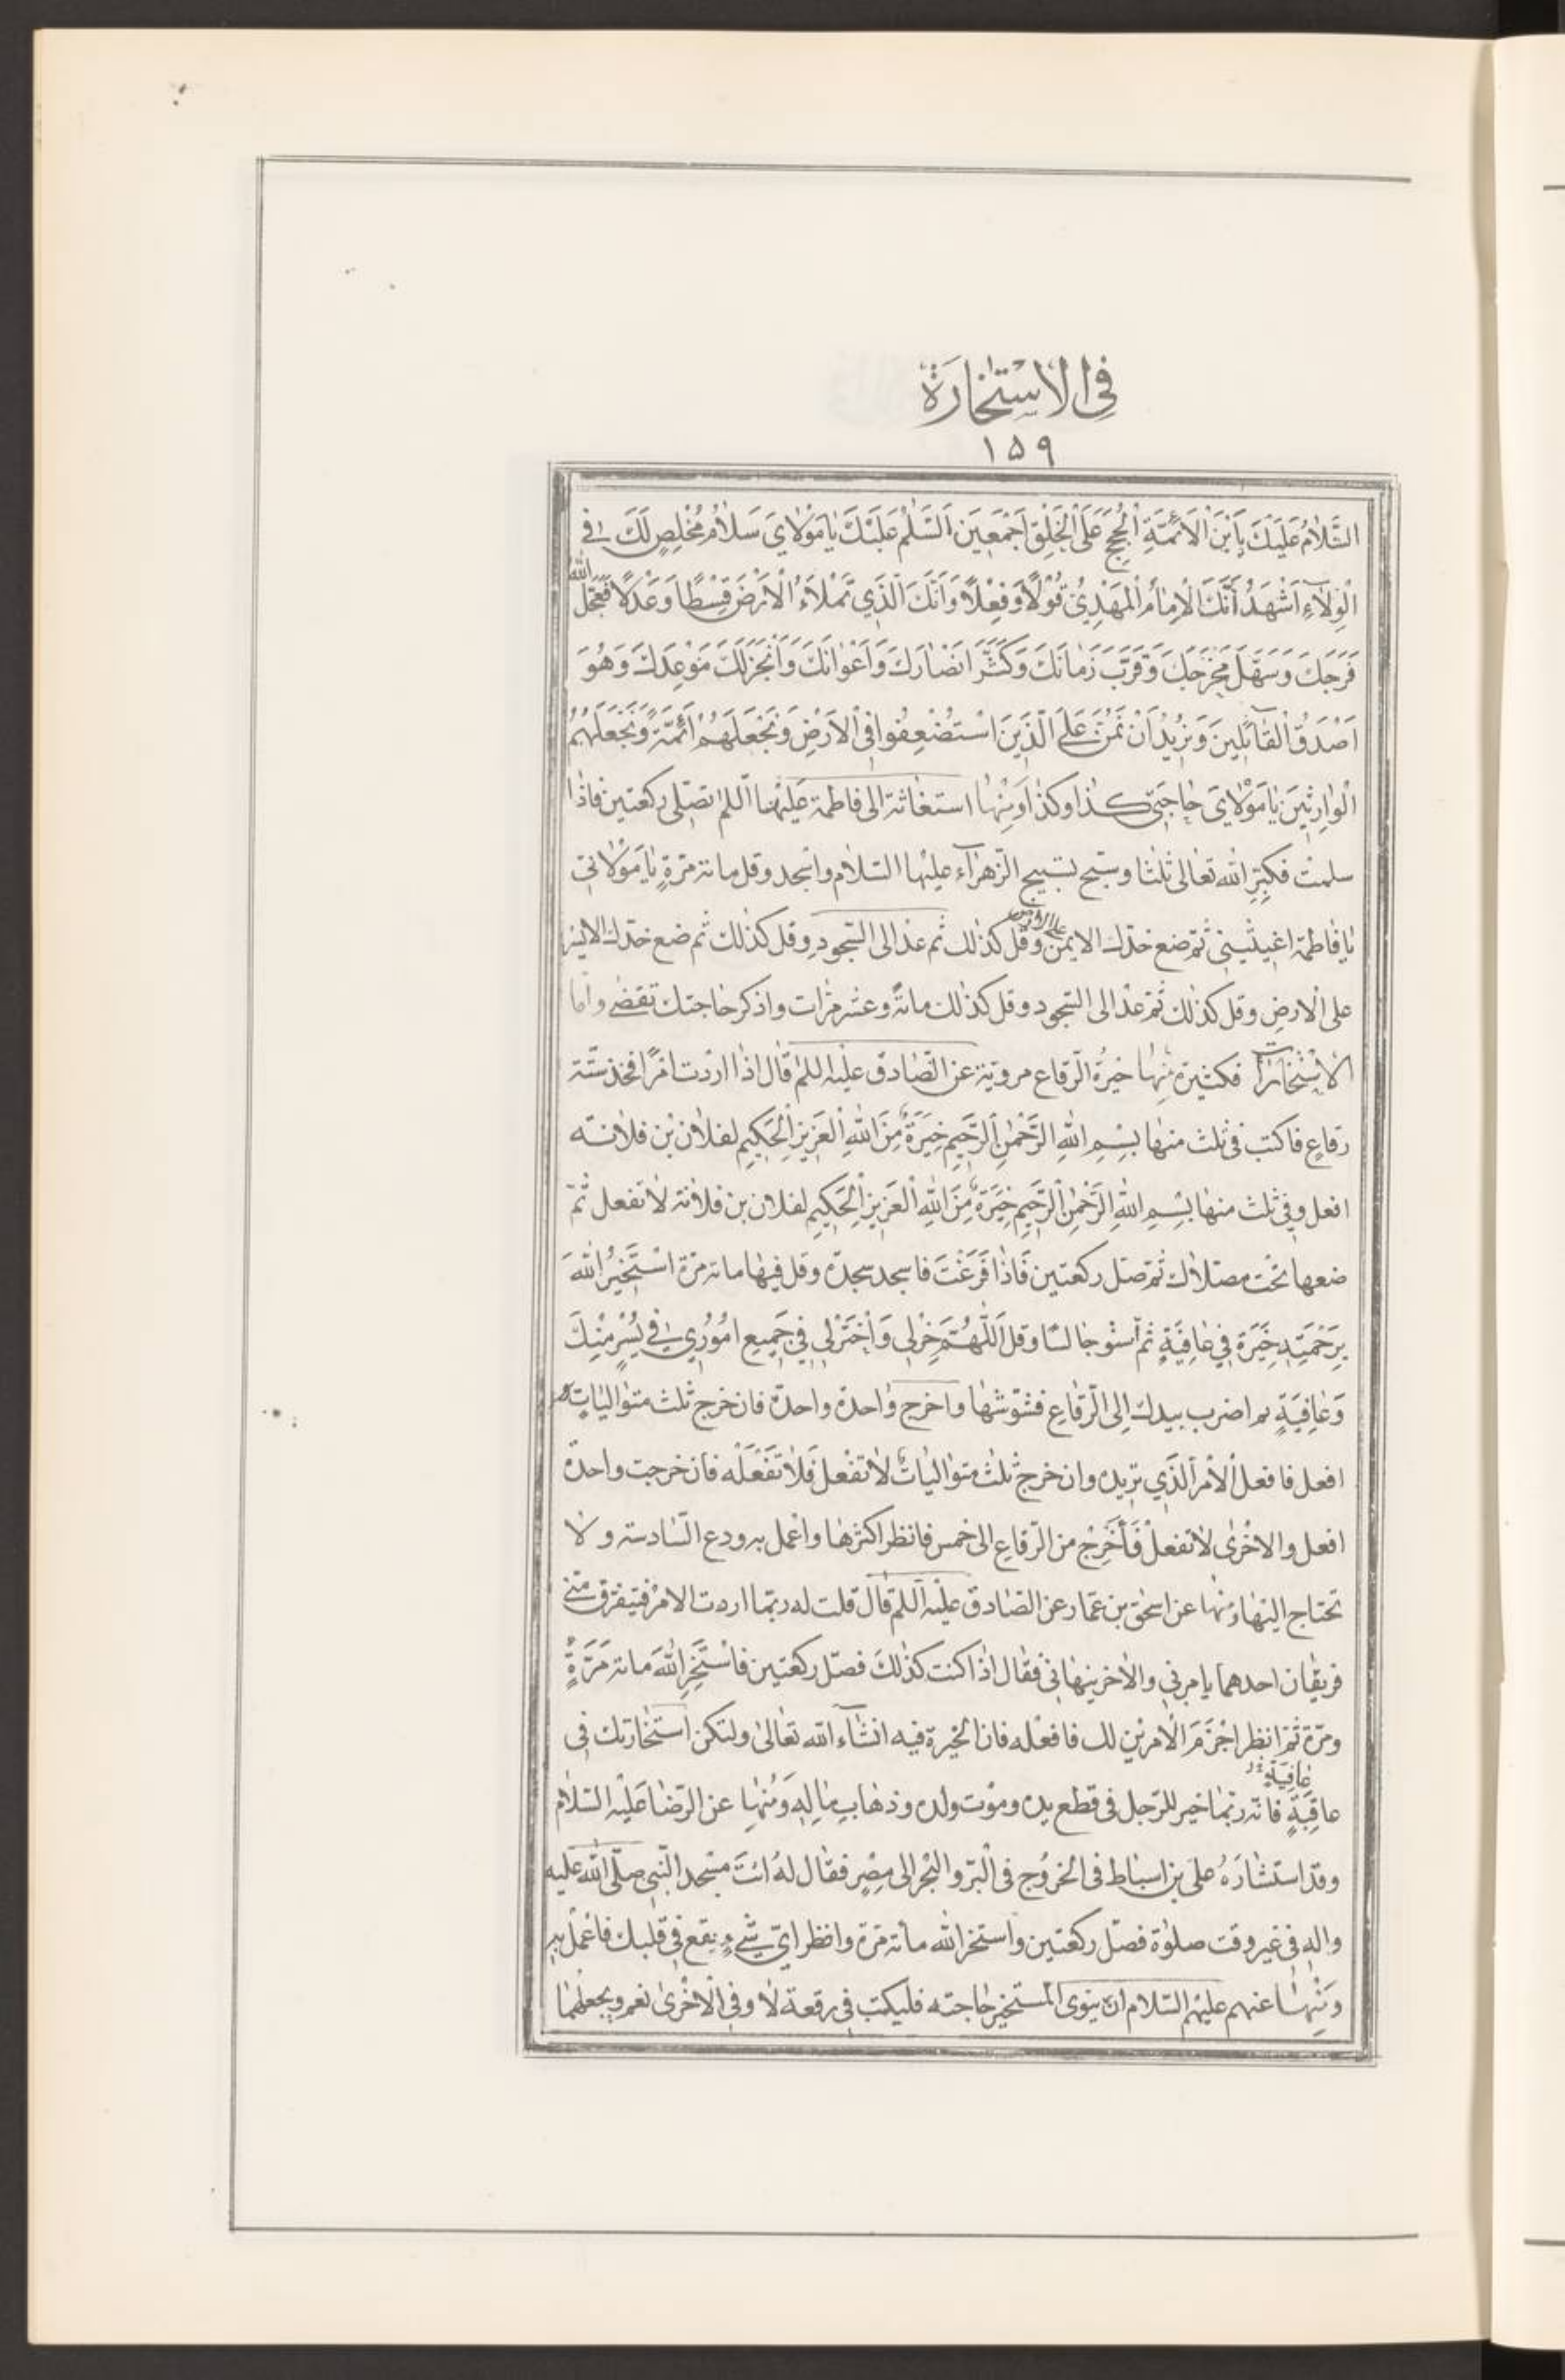 فِي الْاسْتِخَارَةِ
١٥٩
السَّلَامُ عَلَيْكَ يَابْنَ الْاَئِمَّةِ الْحُجَجِ عَلَى الْخَلْقِ اَجْمَعِينَ اَلسَّلٰمُ عَلَيْكَ يَا مَوْلَايَ سَلَامَ مُخْلِصٍ لَكَ فِي
الْوِلَاۤءِ اَشْهَدُ اَنَّكَ الْاِمَامُ الْمَهْدِيُّ قَوْلًا وَفِعْلًا وَاَنَّكَ الَّذِي تَمْلَاءُ الْاَرْضَ قِسْطًا وَعَدْلًا فَعَجَّلَ اللّٰهُ
فَرَجَكَ وَسَهَّلَ مَخْرَجَكَ وَقَرَّبَ زَمَانَكَ وَكَثَّرَ اَنْصَارَكَ وَاَعْوَانَكَ وَاَنْجَزَ لَكَ مَوْعِدَكَ وَهُوَ
اَصْدَقُ الْقَاۤئِلِينَ وَنُرِيدُ اَنْ نَمُنَّ عَلَى الَّذِينَ اسْتُضْعِفُوا فِي الْاَرْضِ وَنَجْعَلَهُمْ اَئِمَّةً وَنَجْعَلَهُمُ
الْوَارِثِينَ يَا مَوْلَايَ حَاجَتِي كذا وكذا وَمِنْهَا استغاثة الى فاطمة عَلَيْهَا اَللم تصلّى ركعتين فاذا
سلمت فكبّر اللّٰه تعالى ثلثا وسبّح تسبيح الزّهراۤء عليها السّلام واسجد وقل مائة مرّةٍ يا مَوْلَاتِي
يا فاطمة اغيثينى ثمّ ضع خدّك الايمن على الارض وقل كذلك ثم عد الى السّجود وقل كذلك ثم ضع خدك الايسر
على الارض وقل كذلك ثمّ عد الى السّجود وقل كذلك مائة وعشر مرّات واذكر حاجتك تقضى واما
الاستخارات فكثيرة مِنْهَا خيرة الرّقاع مرويّة عن الصّادق عليه اللم قال اذا اردت امرًا فخذ ستّة
رقاعٍ فاكتب فى ثلث منها بِسْمِ اللّٰهِ الرَّحْمٰنِ الرَّحِيمِ خِيَرَةٌ مِنَ اللّٰهِ الْعَزِيزِ الْحَكِيمِ لفلان بن فلانة
افعل وفي ثلث منها بِسْمِ اللّٰهِ الرَّحْمٰنِ الرَّحِيمِ خِيَرَةٌ مِنَ اللّٰهِ الْعَزِيزِ الْحَكِيمِ لفلان بن فلانة لا تفعل ثمّ
ضعها تحت مصلّاك ثمّ صلّ ركعتين فَاذَا فَرَغْتَ فاسجد سجدة وقل فيها مائة مرّة اسْتَخِيرُ اللّٰهَ
بِرَحْمَتِهِ خِيَرَةً فِي عَافِيَةٍ ثم استو جالسًا وقل اَللّٰهُمَّ خِرْ لِي وَاخْتَرْ لِي فِي جَمِيعِ امُوُرِي فِي يُسْرٍ مِنْكَ
وَعَافِيَةٍ ثم اضرب بيدك اِلى الرّقاع فشوّشها واخرج واحدة واحدة فان خرج ثلث متواليات
افعل فافعل الْاَمْرَ الَّذِي تريده وان خرج ثلث متوالياتٌ لا تفعل فَلَا تَفْعَلْه فان خرجت واحدة
افعل والاخرى لا تفعل فَأَخْرِجْ من الرّقاع الى خمس فانظر اكثرها واعمل به ودع السّادسة ولا
تحتاج اليها وَمنها عن اسحق بن عمّار عن الصّادق عليه اللم قال قلت له ربّما اردت الامر فيتفرق منّي
فريقان احدهما يامرني والاخر ينهاني فقال اذا كنت كذلك فصلّ ركعتين فاسْتَخِرِ اللّٰهَ مائة مَرَّةٍ
ومرّة ثمّ انظر اجزم الامرين لك فافعله فان الخيرة فيه انشاۤء اللّٰه تعالى ولتكن استخارتك في
عَافِيَةٍ
عاقِبَةٍ فانّه ربّما خير للرّجل فى قطع يده وموت ولده وذهاب مالِهِ وَمِنْهَا عن الرّضا عَلَيْهِ السّلام
وقد استشارَهُ على بن اسباط فى الخرُوج فى البرّ والبحر الى مصر فقال لهُ ائت مسجد النّبى صلّى اللّٰه عليه
واله فى غير وقت صلٰوة فصلّ ركعتين واستخر اللّٰه مائة مرّة وانظر ايّ شيء يقع فى قلبك فاعْمَلْ به
وَمِنْهَا عنهم عليهم السّلام ان ينوى المستخير حاجته فليكتب فى رقعة لا وفى الاخرى نعم ويجعلهما